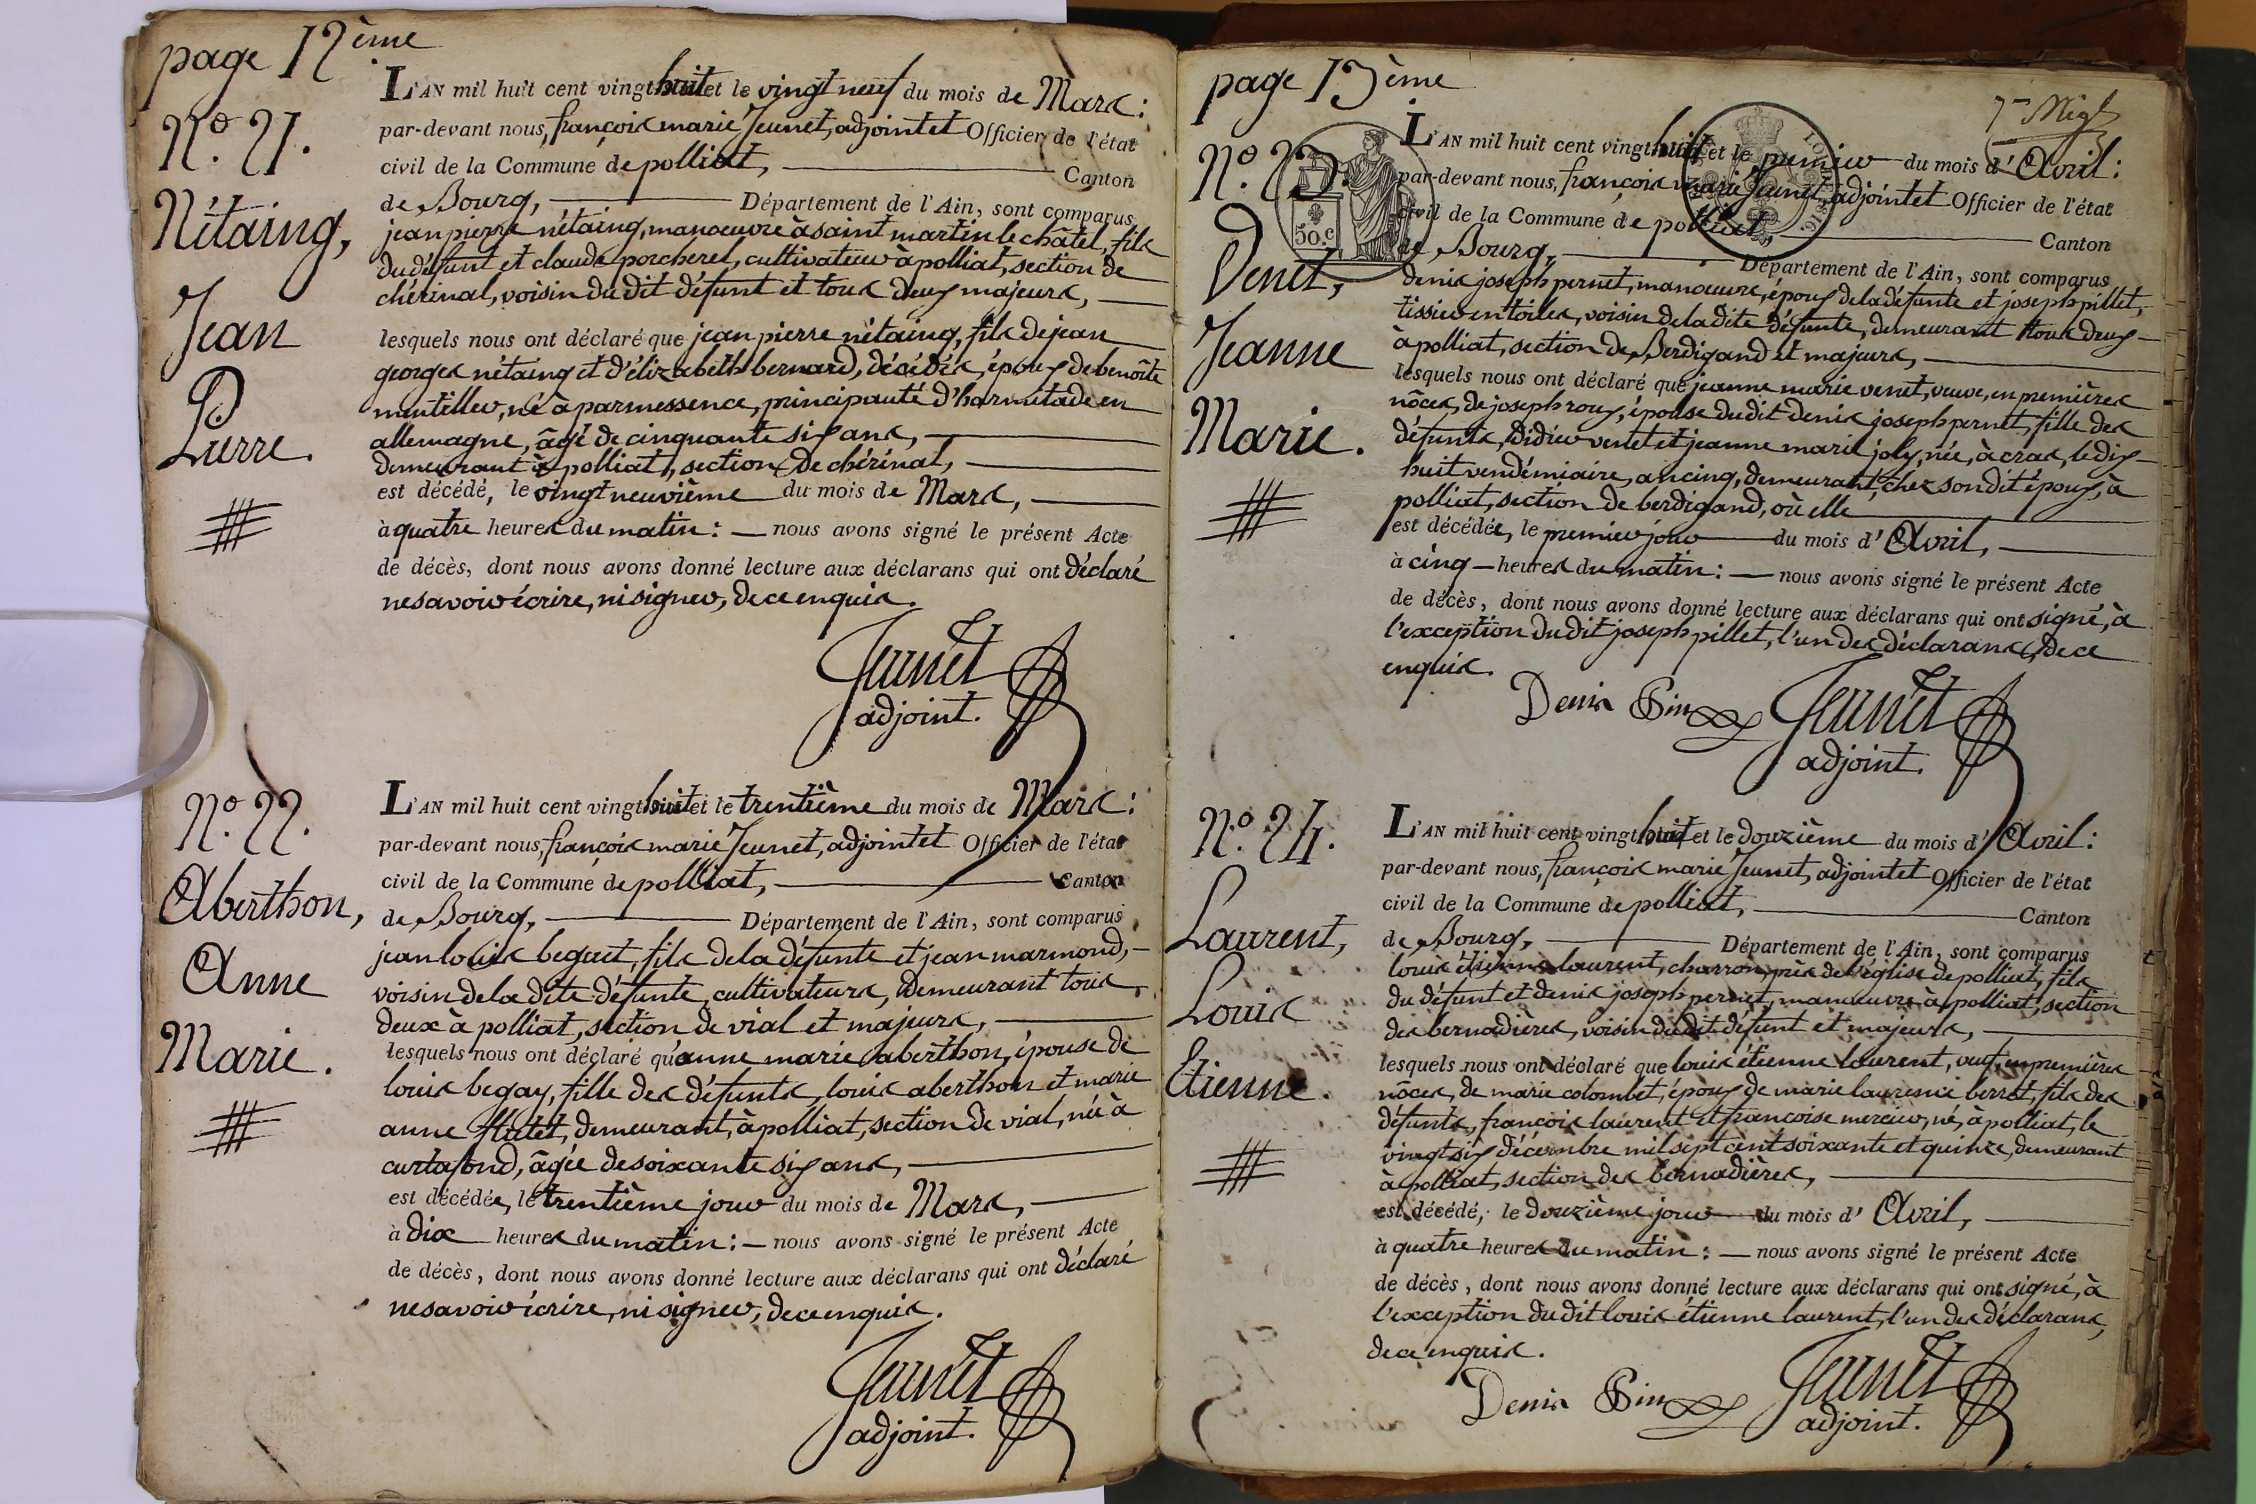 page 12ème
N.° 21.
Nétaing,
Jean
Pierre.
L'AN mil huit cent vingt huit et le vingt neuf du mois de Mars:
par-devant nous, françois marie Jeunet, adjoint et Officier de l'état
civil de la Commune de polliat, Canton
de Bourg, Département de l'Ain, sont comparus
jean pierre nétaing, manoeuvre à saint martin le châtel, fils
du défunt et claude porcheret, cultivateur à polliat, section de
chérinal, voisin du dit défunt et tous deux majeurs,
lesquels nous ont déclaré que jean pierre nétaing, fils de jean
georges nétaing et d'élizabeth bernard, décédés, époux de benoîte
mentiller, né à parmessence, principauté d'harmstade en
allemagne, âgé de cinquante six ans,
demeurant à polliat, section de chérinal,
est décédé, le vingt neuvième du mois de Mars,
à quatre heures du matin: nous avons signé le présent Acte
de décès, dont nous avons donné lecture aux déclarans qui ont déclaré
ne savoir écrire, ni signer, de ce enquis.
Jeunet
adjoint.
N.° 22.
Aberthon,
Anne
Marie.
L'AN mil huit cent vingt huit et le trentième du mois de Mars:
par-devant nous, françois marie Jeunet, adjoint et Officier de l'état
civil de la Commune de polliat, Canton
de Bourg, Département de l'Ain, sont comparus
jean louis beguet, fils de la défunte et jean marmond,
voisin de la dite défunte, cultivateurs, demeurant tous
deux à polliat, section de vial et majeurs,
lesquels nous ont déclaré qu'anne marie aberthon, épouse de
louis begay, fille des défunts, louis aberthon et marie
anne flutet, demeurant, à polliat, section de vial, née à
curtafond, âgée de soixante six ans,
est décédée, le trentième jour du mois de Mars,
à dix heures du matin: nous avons signé le présent Acte
de décès, dont nous avons donné lecture aux déclarans qui ont déclaré
ne savoir écrire, ni signer, de ce enquis.
Jeunet
adjoint.
page 13ème
N.° 23.
Venet,
Jeanne
Marie.
50.c
L'AN mil huit cent vingt huit et le premier du mois d'Avril:
par-devant nous, françois marie Jeunet, adjoint et Officier de l'état
civil de la Commune de polliat, Canton
de Bourg, Département de l'Ain, sont comparus
denis joseph pernet, manoeuvre, époux de la défunte et joseph pillet,
tissier en toiles, voisin de la dite défunte, demeurant tous deux
à polliat, section de Berdigand et majeurs,
lesquels nous ont déclaré que jeanne marie venet, veuve, en premières
nôces, de joseph roux, épouse du dit denis joseph pernet, fille des
défunts, Didier venet et jeanne marie joly, née, à cras, le dix
huit vendémiaire, an cinq, demeurant, chez son dit époux, à
polliat, section de berdigand, où elle
est décédée, le premier jour du mois d'Avril,
à cinq heures du matin: nous avons signé le présent Acte
de décès, dont nous avons donné lecture aux déclarans qui ont signé, à
l'exception du dit joseph pillet, l'un des déclarans, de ce
enquis.
Denis Jeunet
adjoint.
N.° 24.
Laurent,
Louis
Etienne.
L'AN mil huit cent vingt huit et le douzième du mois d'Avril:
par-devant nous, françois marie Jeunet, adjoint et Officier de l'état
civil de la Commune de polliat, Canton
de Bourg, Département de l'Ain, sont comparus
louis étienne laurent, charron près de l'église de polliat, fils
du défunt et denis joseph pernet, manoeuvre à polliat, section
des bernadières, voisin du dit défunt et majeurs,
lesquels nous ont déclaré que louis étienne laurent, veuf, en premières
nôces, de marie colombet, époux de marie laurence berrot, fils des
défunts, françois laurent et françoise mercier, né, à polliat, le
vingt six décembre mil sept cent soixante et quinze, demeurant
à polliat, section des bernadières,
est décédé, le douzième jour du mois d'Avril,
à quatre heures du matin: nous avons signé le présent Acte
de décès, dont nous avons donné lecture aux déclarans qui ont signé, à
l'exception du dit louis étienne laurent, l'un des déclarans,
de ce enquis.
Denis Jeunet
adjoint.